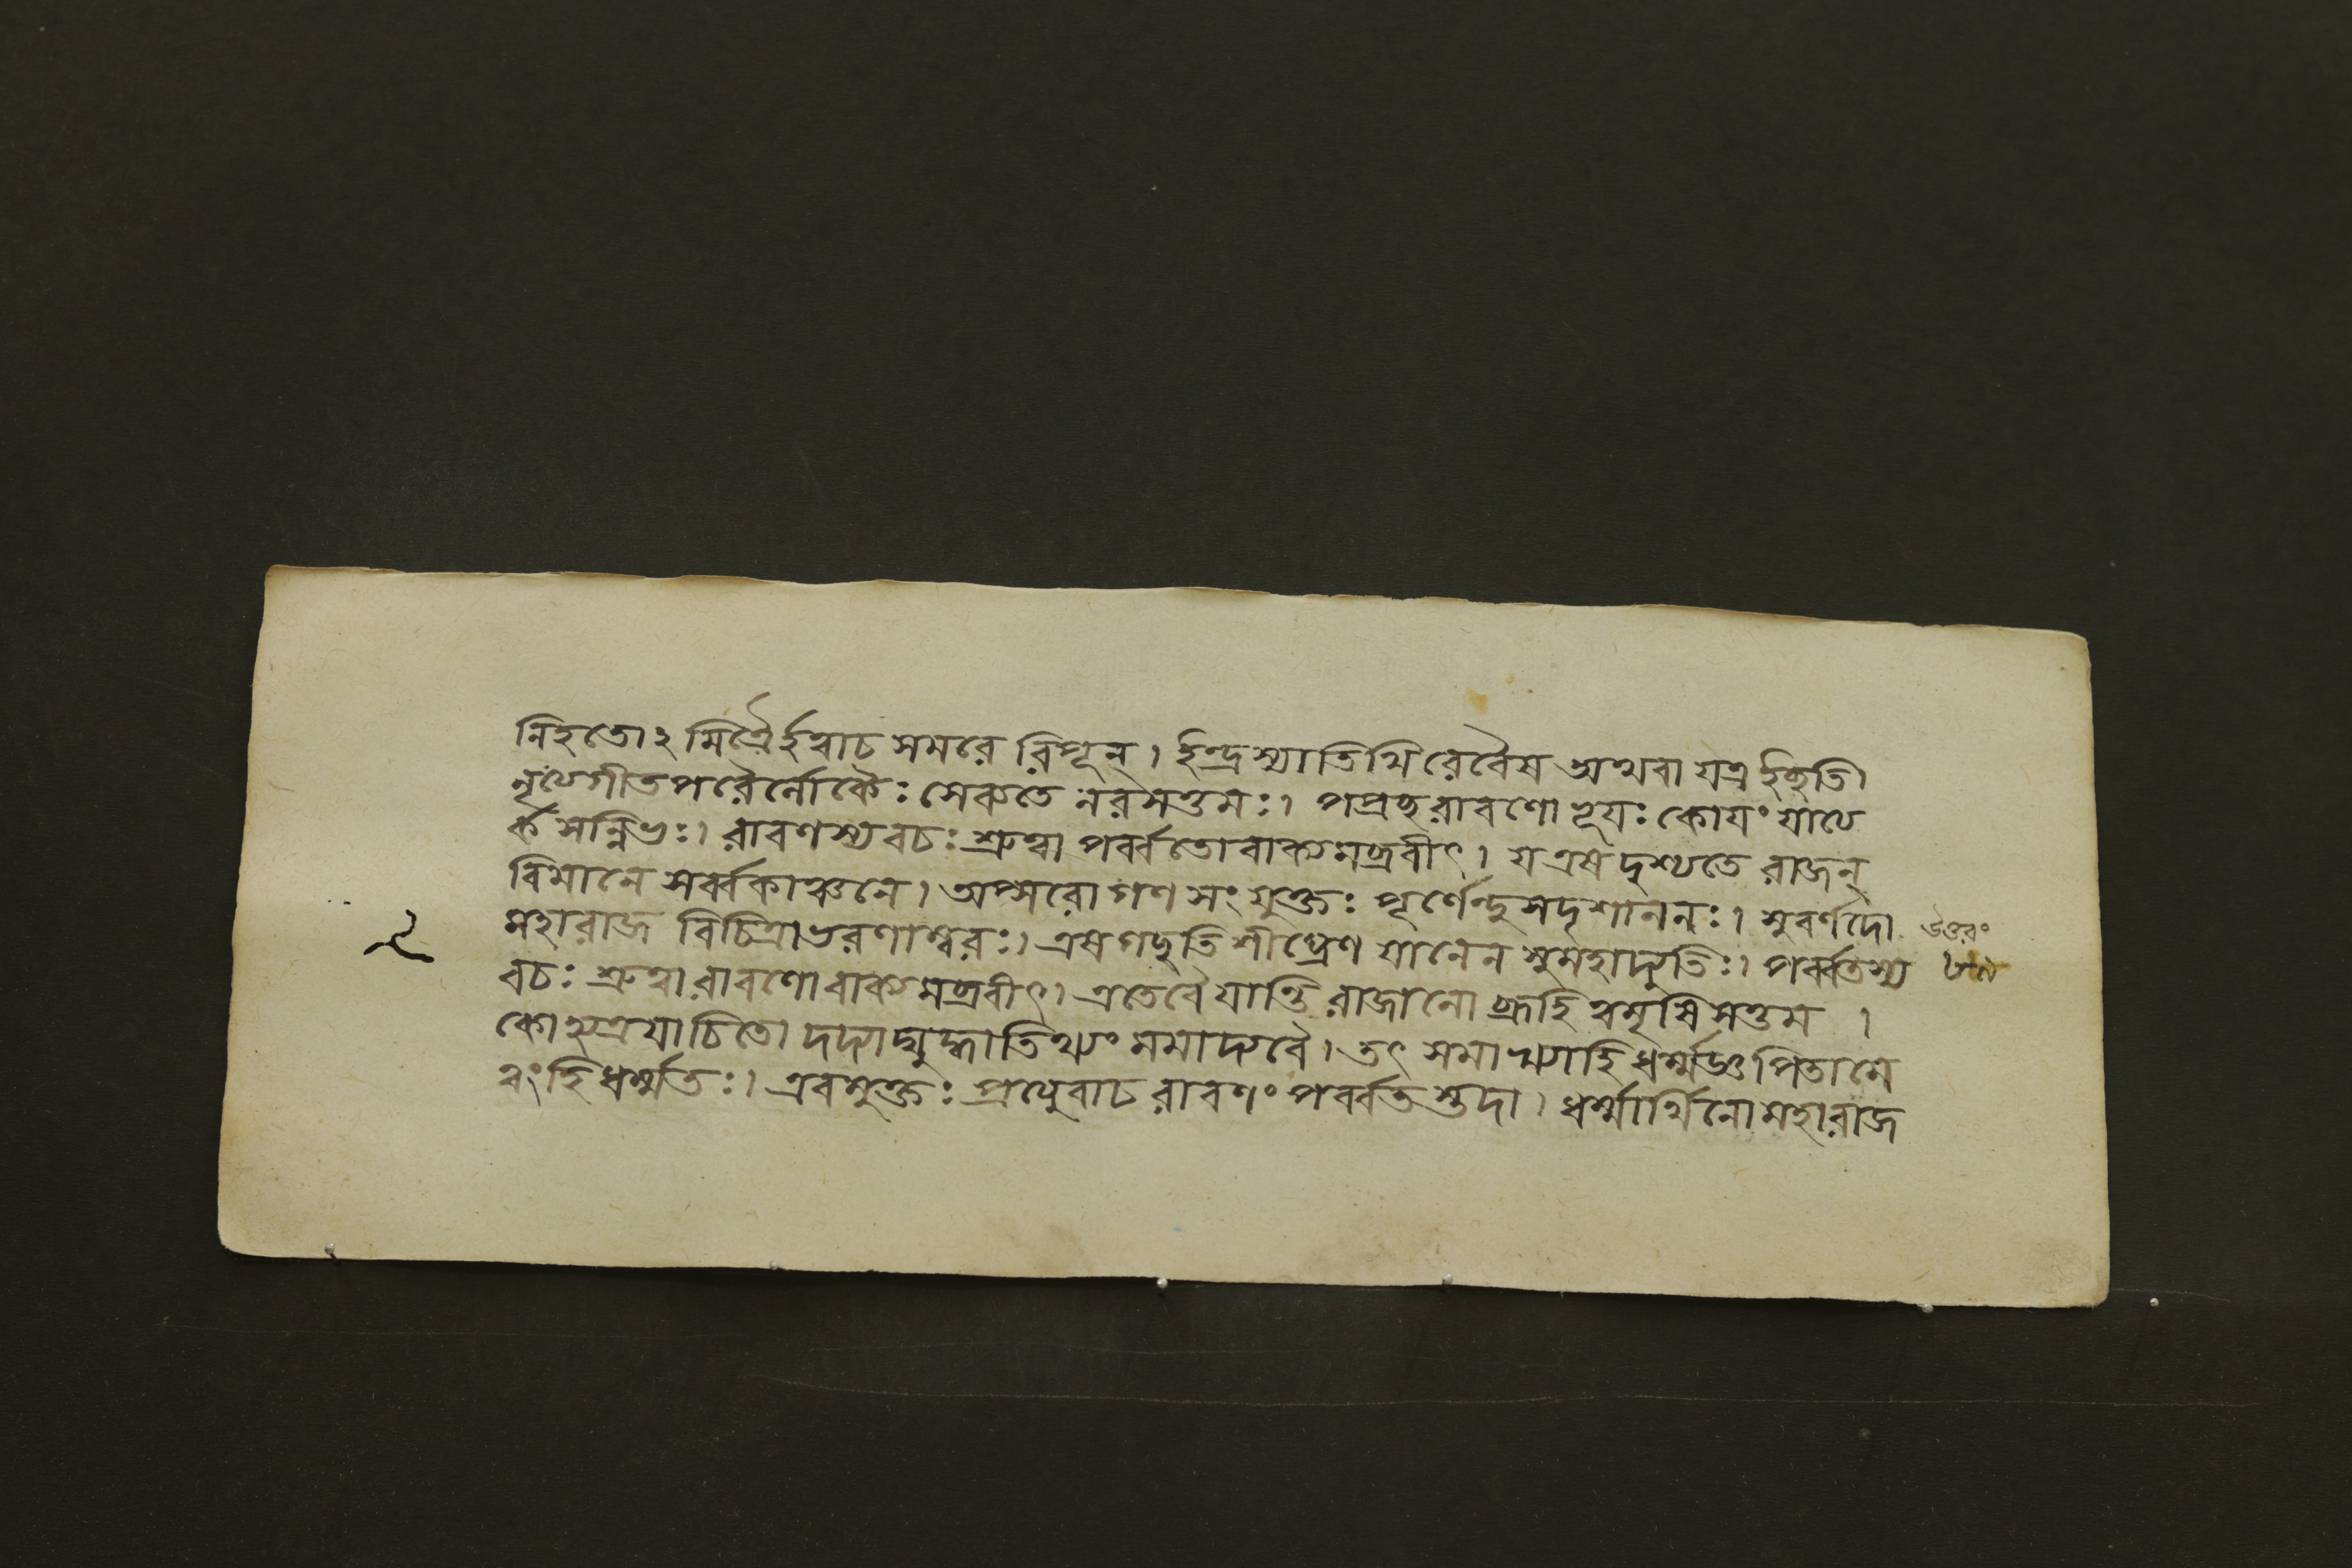 নিহতোঽমিত্রৈর্হত্বাচ সমরে রিপূন্। ইন্দ্রস্যাতিথিরেবৈষ অথবা যত্র ইচ্ছতি।
নৃত্যগীতপরৈর্লোকৈঃ সেব্যতে নরসত্তমঃ। পপ্রচ্ছ রাবণো ভূযঃ কোযং যাত্য
র্কসন্নিভঃ। রাবণস্য বচঃ শ্রুত্বা পর্ব্বতো বাক্যমব্রবীৎ। য এষ দৃশ্যতে রাজন্
বিমানে সর্ব্বকাঞ্চনে। অপ্সরোগণসংযুক্তঃ পূর্ণেন্দুসদৃশাননঃ। সুবর্ণদো উত্তরং
মহারাজ বিচিত্রাভরণাম্বরঃ। এষ গচ্ছতি শীঘ্রেণ যানেন সুমহাদ্যুতিঃ। পর্ব্বতস্য
বচঃ শ্রুত্বা রাবণো বাক্যমব্রবীৎ। এতে বৈ যান্তি রাজানো ব্রূহি ত্বমৃষিসত্তম ।
কোহ্যত্র যাচিতো দদ্যাদ্যুদ্ধাতিথ্যং মমাদ্য বৈ। তৎ সমাখ্যাহি ধর্ম্মজ্ঞ পিতা মে
ত্বং হি ধর্ম্মতঃ। এবমুক্তঃ প্রত্যুবাচ রাবণং পর্ব্বতস্তদা। ধর্ম্মার্থিনো মহারাজ